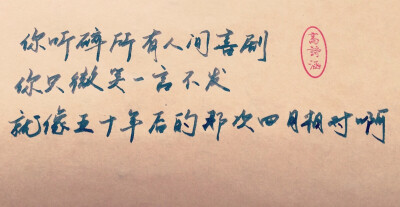 你听碎所有人间喜剧
你只微笑一言不发
就像五十年后的那次四目相对啊
高诗涵